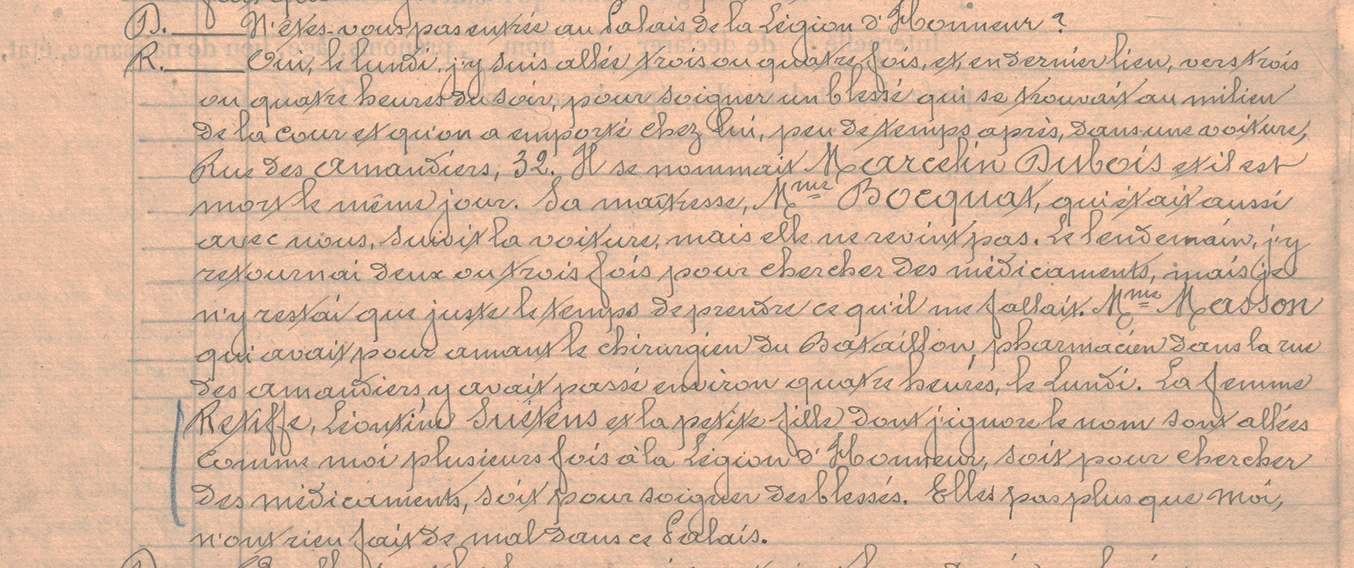 D. N'êtes-vous pas entrée au Palais de la Légion d'Honneur ?
R. Oui, le lundi, j'y suis allée trois ou quatre fois, et, en dernier lieu, vers trois
ou quatre heures du soir, pour soigner un blessé qui se trouvait au milieu
de la cour et qu'on a emporté chez lui, peu de temps après, dans une voiture,
Rue des Amandiers, 32. Il se nommait Marcelin Dubois et il est
mort le même jour. Sa maîtresse, Mme Bocquat, qui était aussi
avec nous, suivit la voiture, mais elle ne revint pas. Le lendemain, j'y
retournai deux ou trois fois pour chercher des médicaments, mais je
n'y restai que juste le temps de prendre ce qu'il me fallait. Mme Masson
qui avait pour amant le chirurgien du Bataillon, pharmacien dans la rue
des amandiers, y avait passé environ quatre heures, le Lundi. La femme
Retiffe, Léontine Suétens et la petite fille dont j'ignore le nom sont allées
comme moi plusieurs fois à la Légion d'Honneur, soit pour chercher
des médicaments, soit pour soigner des blessés. Elles pas plus que moi,
n'ont rien fait de mal dans ce Palais.